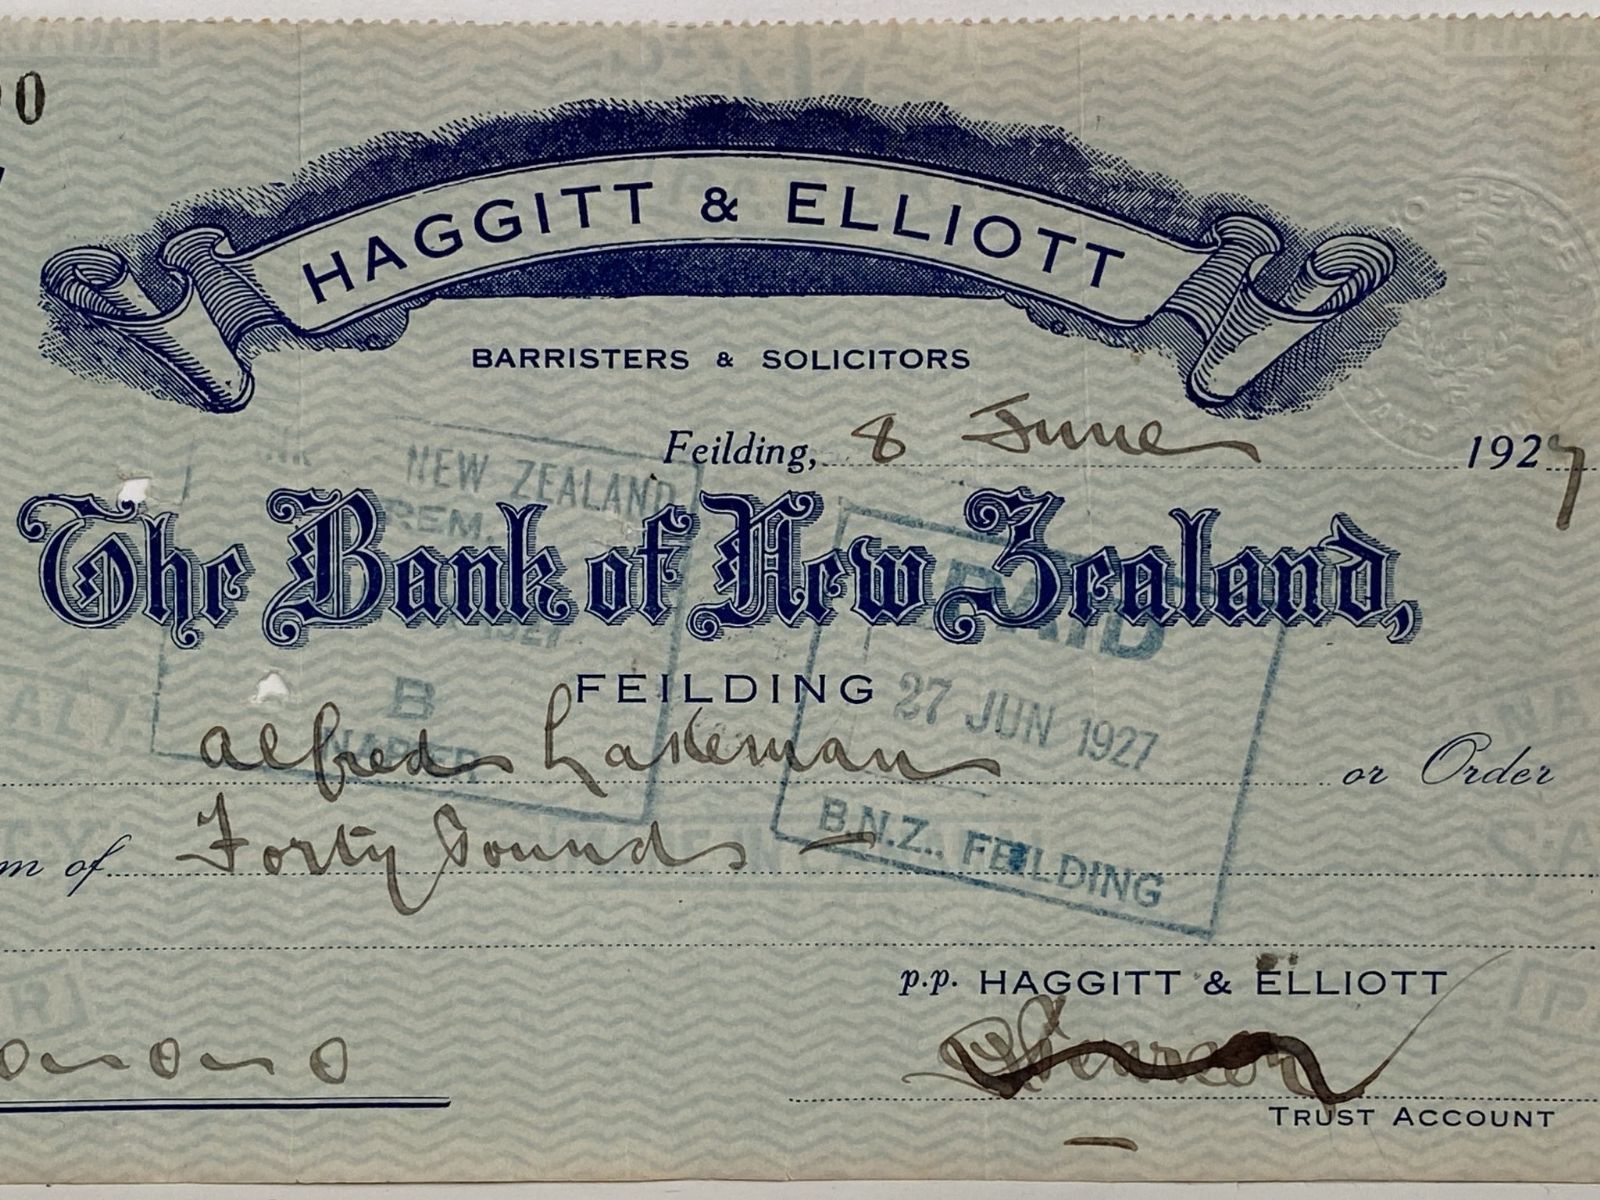 0
HAGGITT & ELLIOTT
BARRISTERS & SOLICITORS
Feilding, 8 June 1927
NEW ZEALAND
REM.
The Bank of New Zealand,
PAID
1927
FEILDING
B
27 JUN 1927
NAPIER
Alfred Lakeman or Order
B.N.Z., FEILDING
m of Forty Pounds —
p.p. HAGGITT & ELLIOTT
TRUST ACCOUNT